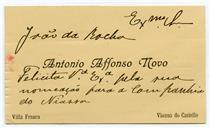 Exmo. Sr.
João da Rocha
Antonio Affonso Novo
Felicita Vª Exª pela sua
nomeação para a Companhia
do Niassa.
Villa Franca Vianna do Castello